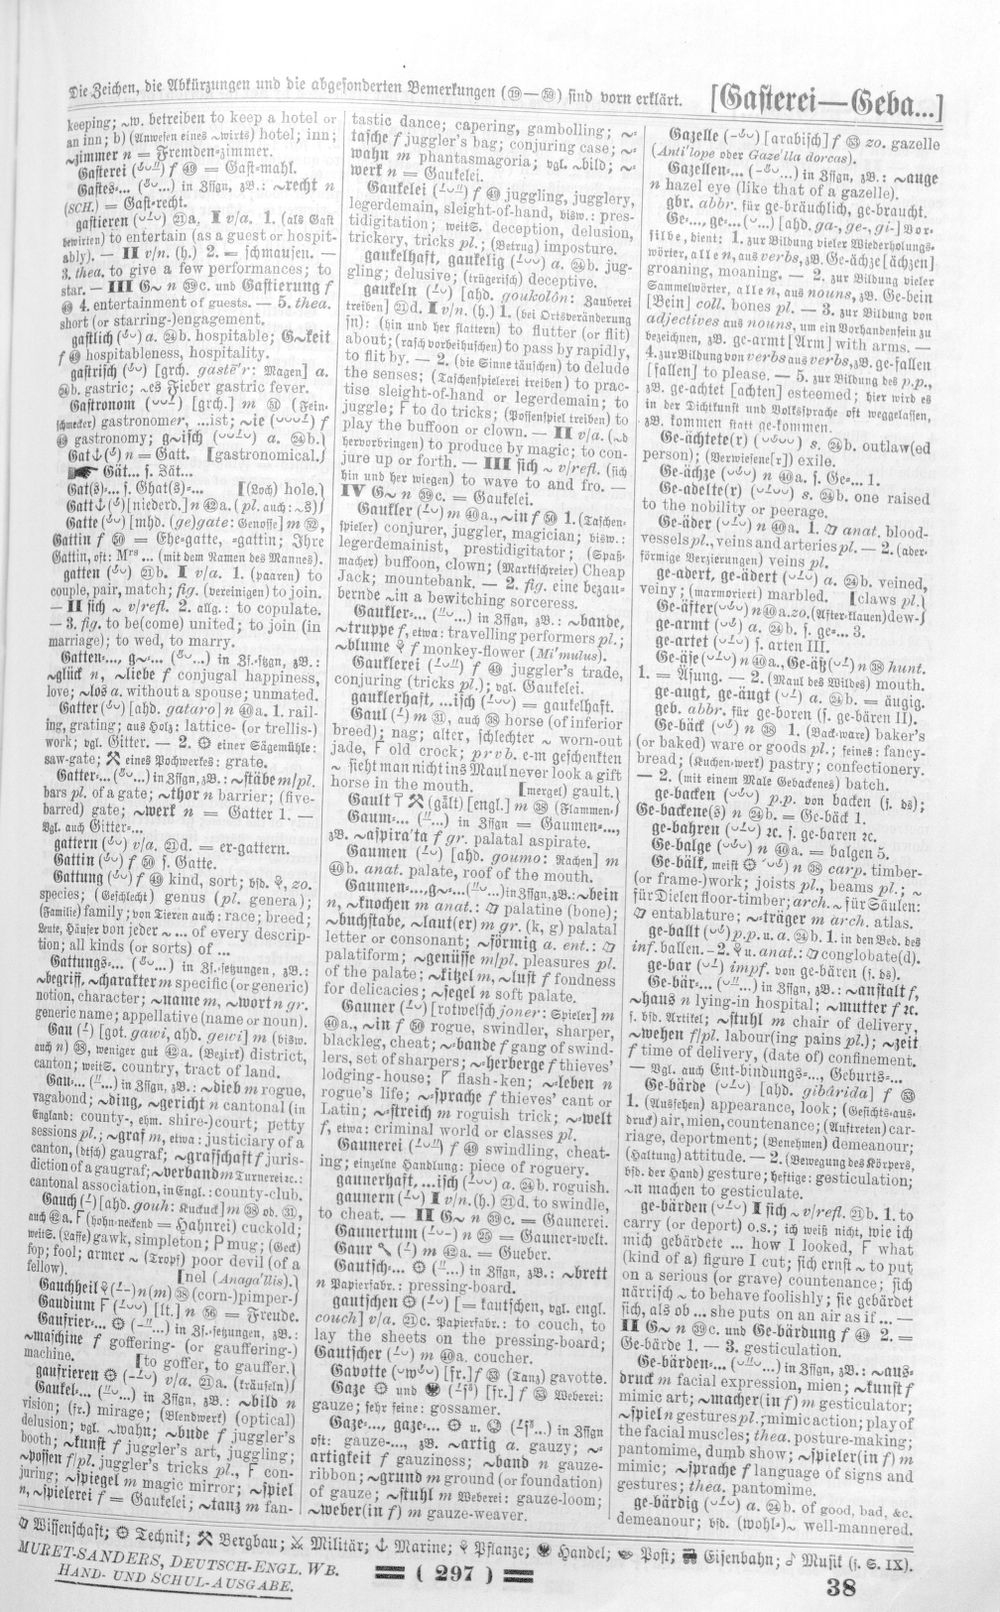 Die Zeichen, die Abkürzungen und die abgesonderten Bemerkungen (⑲—㊾) sind vorn erklärt.
[Gasterei—Geba...]
keeping; ~w. betreiben to keep a hotel or
an inn; b) (Anwesen eines ~wirts) hotel; inn;
~zimmer n = Fremden-zimmer.
Gasterei f ㊾ = Gast-mahl.
Gastes-... in Zssgn, zB.: ~recht n
(SCH.) = Gast-recht.
gastieren ㉑a. I v/a. 1. (als Gast
bewirten) to entertain (as a guest or hospit-
ably). — II v/n. (h.) 2. = schmausen. —
3. thea. to give a few performances; to
star. — III G~ n ㊴c. und Gastierung f
㊾ 4. entertainment of guests. — 5. thea.
short (or starring-)engagement.
gastlich a. ㉔b. hospitable; G~keit
f ㊾ hospitableness, hospitality.
gastrisch [grch. gastē'r: Magen] a.
㉔b. gastric; ~es Fieber gastric fever.
Gastronom [grch.] m (Fein-
schmecker) gastronomer, ...ist; ~ie f
㊾ gastronomy; g~isch a. ㉔b.
Gat n = Gatt. [gastronomical.
Gät... s. Gät...
Gat(s)-... s. Ghat(s)-... [(Loch) hole.
Gatt [niederd.] n ㊷a. (pl. auch: ~s)
Gatte [mhd. (ge)gate: Genosse] m,
Gattin f ㊿ = Ehe-gatte, -gattin; Ihre
Gattin, oft: Mrs ... (mit dem Namen des Mannes).
gatten ㉑b. I v/a. 1. (paaren) to
couple, pair, match; fig. (vereinigen) to join.
— II sich ~ v/refl. 2. allg.: to copulate.
— 3. fig. to be(come) united; to join (in
marriage); to wed, to marry.
Gatten-..., g~-... in Zs.-stzgn, zB.:
~glück n, ~liebe f conjugal happiness,
love; ~los a. without a spouse; unmated.
Gatter [ahd. gataro] n ㊵a. 1. rail-
ing, grating; aus Holz: lattice- (or trellis-)
work; vgl. Gitter. — 2. einer Sägemühle:
saw-gate; eines Pochwerkes: grate.
Gatter-... in Zssgn, zB.: ~stäbe m/pl.
bars pl. of a gate; ~thor n barrier; (five-
barred) gate; ~werk n = Gatter 1. —
Vgl. auch Gitter-...
gattern v/a. ㉑d. = er-gattern.
Gattin f ㊿ s. Gatte.
Gattung f ㊾ kind, sort; bsd. zo.
species; (Geschlecht) genus (pl. genera);
(Familie) family; von Tieren auch: race; breed;
Leute, Häuser von jeder ~ ... of every descrip-
tion; all kinds (or sorts) of ...
Gattungs-... in Zs.-setzungen, zB.:
~begriff, ~charakter m specific (or generic)
notion, character; ~name m, ~wort n gr.
generic name; appellative (name or noun).
Gau [got. gawi, ahd. gewi] m (bisw.
auch n) ㊳, weniger gut ㊷a. (Bezirk) district,
canton; weitS. country, tract of land.
Gau-... in Zssgn, zB.: ~dieb m rogue,
vagabond; ~ding, ~gericht n cantonal (in
England: county-, ehm. shire-)court; petty
sessions pl.; ~graf m, etwa: justiciary of a
canton, (btsch) gaugraf; ~grafschaft f juris-
diction of a gaugraf; ~verband m Turnerei 2c.:
cantonal association, in Engl.: county-club.
Gauch [ahd. gouh: Kuckuck] m ㊳ od. ㉛,
auch ㊷a. F (hohn-neckend = Hahnrei) cuckold;
weitS. (Laffe) gawk, simpleton; P mug; (Geck)
fop; fool; armer ~ (Tropf) poor devil (of a
fellow). [nel (Anaga'llis).
Gauchheil n(m) ㊳ (corn-)pimper-
Gaudium F [lt.] n = Freude.
Gaufrier-... in Zs.-setzungen, zB.:
~maschine f goffering- (or gauffering-)
machine. [to goffer, to gauffer.
gaufrieren v/a. ㉑a. (kräuseln)
Gaukel-... in Zssgn, zB.: ~bild n
vision; (fr.) mirage; (Blendwerk) (optical)
delusion; vgl. ~wahn; ~bude f juggler's
booth; ~kunst f juggler's art, juggling;
~possen f/pl. juggler's tricks pl., F con-
juring; ~spiegel m magic mirror; ~spiel
n, ~spielerei f = Gaukelei; ~tanz m fan-
tastic dance; capering, gambolling; ~-
tasche f juggler's bag; conjuring case; ~-
wahn m phantasmagoria; vgl. ~bild; ~-
werk n = Gaukelei.
Gaukelei f ㊾ juggling, jugglery,
legerdemain, sleight-of-hand, bisw.: pres-
tidigitation; weitS. deception, delusion,
trickery, tricks pl.; (Betrug) imposture.
gaukelhaft, gaukelig a. ㉔b. jug-
gling; delusive; (trügerisch) deceptive.
gaukeln [ahd. goukolôn: Zauberei
treiben] ㉑d. I v/n. (h.) 1. (bei Ortsveränderung
sn): (hin und her flattern) to flutter (or flit)
about; (rasch vorbeihuschen) to pass by rapidly,
to flit by. — 2. (die Sinne täuschen) to delude
the senses; (Taschenspielerei treiben) to prac-
tise sleight-of-hand or legerdemain; to
juggle; F to do tricks; (Possenspiel treiben) to
play the buffoon or clown. — II v/a. (~d
hervorbringen) to produce by magic; to con-
jure up or forth. — III sich ~ v/refl. (sich
hin und her wiegen) to wave to and fro. —
IV G~ n ㊴c. = Gaukelei.
Gaukler m ㊵a., ~in f ㊿ 1. (Taschen-
spieler) conjurer, juggler, magician; bisw.:
legerdemainist, prestidigitator; (Spaß-
macher) buffoon, clown; (Marktschreier) Cheap
Jack; mountebank. — 2. fig. eine bezau-
bernde ~in a bewitching sorceress.
Gaukler-... in Zssgn, zB.: ~bande,
~truppe f, etwa: travelling performers pl.;
~blume f monkey-flower (Mi'mulus).
Gauklerei f ㊾ juggler's trade,
conjuring (tricks pl.); vgl. Gaukelei.
gauklerhaft, ...isch = gaukelhaft.
Gaul m ㉛, auch ㊳ horse (of inferior
breed); nag; alter, schlechter ~ worn-out
jade, F old crock; prvb. e-m geschenkten
~ sieht man nicht ins Maul never look a gift
horse in the mouth. [mergel) gault.
Gault (gălt) [engl.] m ㊳ (Flammen-
Gaum-... in Zssgn = Gaumen-...,
zB. ~aspira'ta f gr. palatal aspirate.
Gaumen [ahd. goumo: Rachen] m
㊵b. anat. palate, roof of the mouth.
Gaumen-..., g~-... in Zssgn, zB.: ~bein
n, ~knochen m anat.: palatine (bone);
~buchstabe, ~laut(er) m gr. (k, g) palatal
letter or consonant; ~förmig a. ent.:
palatiform; ~genüsse m/pl. pleasures pl.
of the palate; ~kitzel m, ~lust f fondness
for delicacies; ~segel n soft palate.
Gauner [rotwelsch joner: Spieler] m
㊵a., ~in f ㊿ rogue, swindler, sharper,
blackleg, cheat; ~bande f gang of swind-
lers, set of sharpers; ~herberge f thieves'
lodging-house; F flash-ken; ~leben n
rogue's life; ~sprache f thieves' cant or
Latin; ~streich m roguish trick; ~welt
f, etwa: criminal world or classes pl.
Gaunerei f ㊾ swindling, cheat-
ing; einzelne Handlung: piece of roguery.
gaunerhaft, ...isch a. ㉔b. roguish.
gaunern I v/n. (h.) ㉑d. to swindle,
to cheat. — II G~ n ㊴c. = Gaunerei.
Gaunertum n = Gauner-welt.
Gaur m ㊷a. = Gueber.
Gautsch-... in Zssgn, zB.: ~brett
n Papierfabr.: pressing-board.
gautschen [= kautschen, vgl. engl.
couch] v/a. ㉑c. Papierfabr.: to couch, to
lay the sheets on the pressing-board;
Gautscher m ㊵a. coucher.
Gavotte [fr.] f (Tanz) gavotte.
Gaze und [fr.] f Weberei:
gauze; sehr feine: gossamer.
Gaze-..., gaze-... u. in Zssgn
oft: gauze-..., zB. ~artig a. gauzy; ~-
artigkeit f gauziness; ~band n gauze-
ribbon; ~grund m ground (or foundation)
of gauze; ~stuhl m Weberei: gauze-loom;
~weber(in f) m gauze-weaver.
Gazelle [arabisch] f zo. gazelle
(Anti'lope oder Gaze'lla dorcas).
Gazellen-... in Zssgn, zB.: ~auge
n hazel eye (like that of a gazelle).
gbr. abbr. für ge-bräuchlich, ge-braucht.
Ge-..., ge-... [ahd. ga-, ge-, gi-] Vor-
silbe, dient: 1. zur Bildung vieler Wiederholungs-
wörter, alle n, aus verbs, zB. Ge-ächze [ächzen]
groaning, moaning. — 2. zur Bildung vieler
Sammelwörter, alle n, aus nouns, zB. Ge-bein
[Bein] coll. bones pl. — 3. zur Bildung von
adjectives aus nouns, um ein Vorhandensein zu
bezeichnen, zB. ge-armt [Arm] with arms. —
4. zur Bildung von verbs aus verbs, zB. ge-fallen
[fallen] to please. — 5. zur Bildung des p.p.,
zB. ge-achtet [achten] esteemed; hier wird es
in der Dichtkunst und Volkssprache oft weggelassen,
zB. kommen statt ge-kommen.
Ge-ächtete(r) s. ㉔b. outlaw(ed
person); (Verwiesene[r]) exile.
Ge-ächze n ㊵a. s. Ge-... 1.
Ge-adelte(r) s. ㉔b. one raised
to the nobility or peerage.
Ge-äder n ㊵a. 1. anat. blood-
vessels pl., veins and arteries pl. — 2. (ader-
förmige Verzierungen) veins pl.
ge-adert, ge-ädert a. ㉔b. veined,
veiny; (marmoriert) marbled. [claws pl.
Ge-äfter n ㊵a. zo. (After-klauen) dew-
ge-armt a. ㉔b. s. ge-... 3.
ge-artet s. arten III.
Ge-äse n ㊵a., Ge-äß n ㊳ hunt.
1. = Äsung. — 2. (Maul des Wildes) mouth.
ge-augt, ge-äugt a. ㉔b. = äugig.
geb. abbr. für ge-boren (s. ge-bären II).
Ge-bäck n ㊳ 1. (Back-ware) baker's
(or baked) ware or goods pl.; feines: fancy-
bread; (Kuchen-werk) pastry; confectionery.
— 2. (mit einem Male Gebackenes) batch.
ge-backen p.p. von backen (s. ds);
Ge-backene(s) n ㉔b. = Ge-bäck 1.
ge-bahren 2c. s. ge-baren 2c.
Ge-balge n ㊵a. = balgen 5.
Ge-bälk, meist n ㊳ carp. timber-
(or frame-)work; joists pl., beams pl.; ~
für Dielen floor-timber; arch. ~ für Säulen:
entablature; ~träger m arch. atlas.
ge-ballt p.p. u. a. ㉔b. 1. in den Bed. des
inf. ballen. – 2. u. anat.: conglobate(d).
ge-bar impf. von ge-bären (s. ds).
Ge-bär-... in Zssgn, zB.: ~anstalt f,
~haus n lying-in hospital; ~mutter f 2c.
s. bsd. Artikel; ~stuhl m chair of delivery,
~wehen f/pl. labour(ing pains pl.); ~zeit
f time of delivery, (date of) confinement.
— Vgl. auch Ent-bindungs-..., Geburts-...
Ge-bärde [ahd. gibârida] f
1. (Aussehen) appearance, look; (Gesichts-aus-
druck) air, mien, countenance; (Auftreten) car-
riage, deportment; (Benehmen) demeanour;
(Haltung) attitude. — 2. (Bewegung des Körpers,
bsd. der Hand) gesture; heftige: gesticulation;
~n machen to gesticulate.
ge-bärden I sich ~ v/refl. ㉑b. 1. to
carry (or deport) o.s.; ich weiß nicht, wie ich
mich gebärdete ... how I looked, F what
(kind of a) figure I cut; sich ernst ~ to put
on a serious (or grave) countenance; sich
närrisch ~ to behave foolishly; sie gebärdet
sich, als ob ... she puts on an air as if ... —
II G~ n ㊴c. und Ge-bärdung f ㊾ 2. =
Ge-bärde 1. — 3. gesticulation.
Ge-bärden-... in Zssgn, zB.: ~aus-
druck m facial expression, mien; ~kunst f
mimic art; ~macher(in f) m gesticulator;
~spiel n gestures pl.; mimic action; play of
the facial muscles; thea. posture-making;
pantomime, dumb show; ~spieler(in f) m
mimic; ~sprache f language of signs and
gestures; thea. pantomime.
ge-bärdig a. ㉔b. of good, bad, &c.
demeanour; bsd. (wohl-)~ well-mannered.
Wissenschaft; Technik; Bergbau; Militär; Marine; Pflanze; Handel; Post; Eisenbahn; Musik (s. S. IX).
MURET-SANDERS, DEUTSCH-ENGL. WB.
HAND- UND SCHUL-AUSGABE.
( 297 )
38